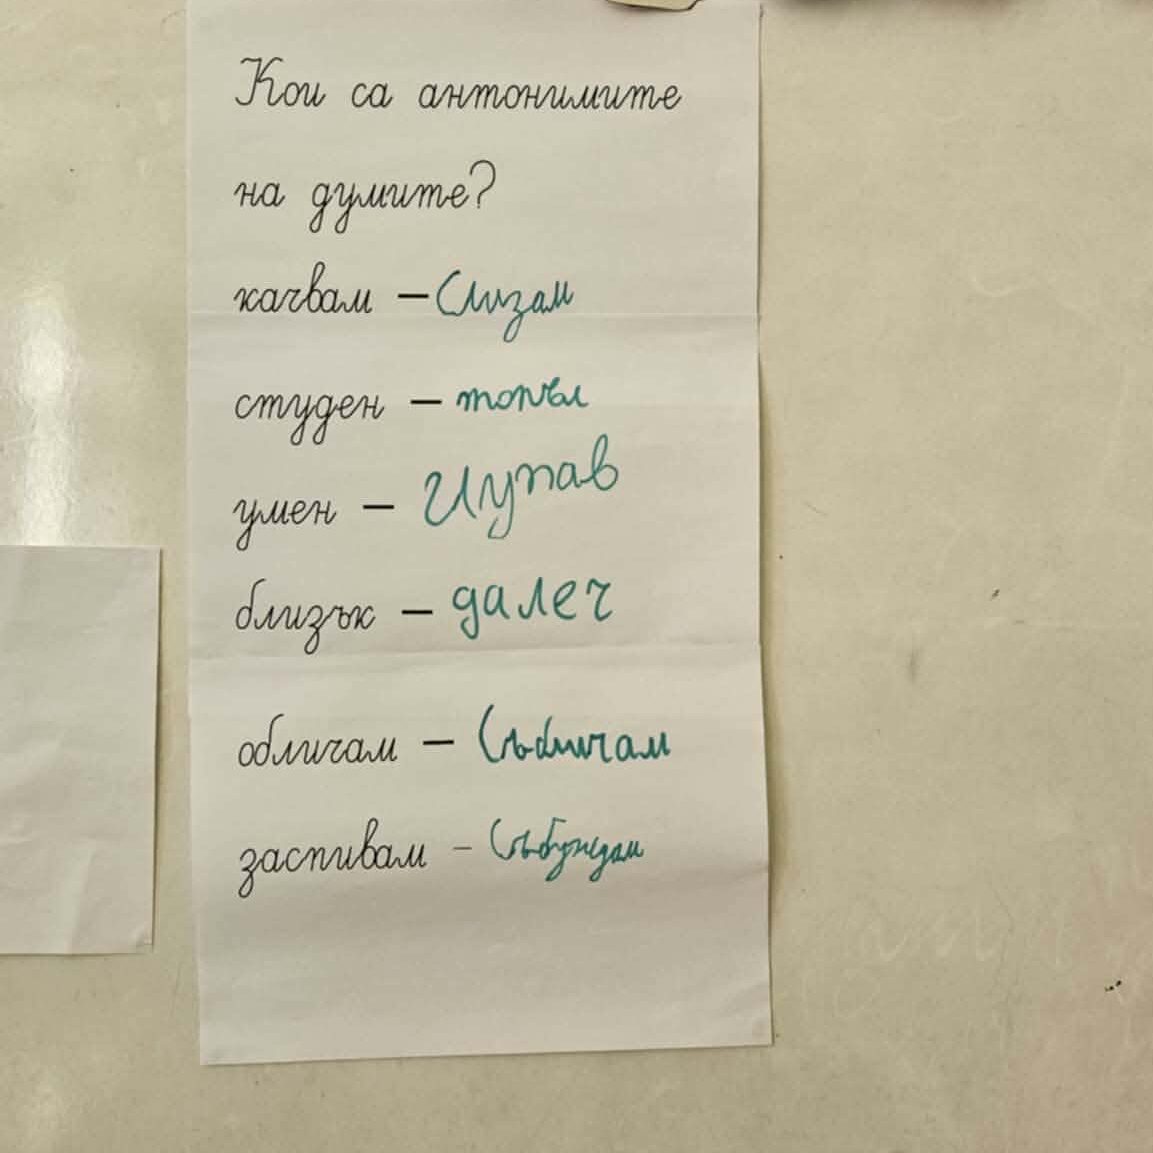 Кои са антонимите
на думите?
качвам – Слизам
студен – топъл
умен – Глупав
близък – далеч
обличам – Събличам
заспивам – Събуждам